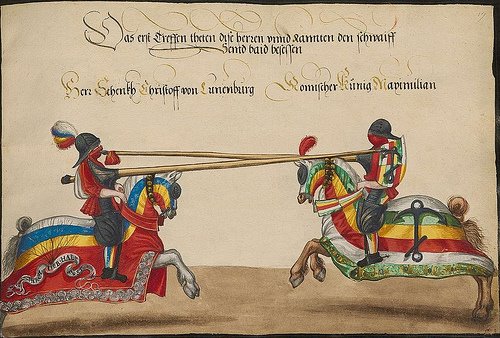 Das erst Treffen theten dise herren vnnd Ranntten den schwaiff
Seind baid besessen
Herr Schenkh Christoff von Lunenburg
Romischer Künig Maximilian